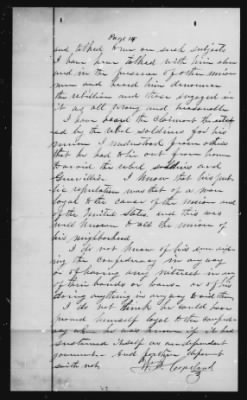 Page 14
and talked to me on such subjects
I have heard talked with him alone
and in the presence of other union
men and heard him denounce
the rebellion and those engaged in
it as all wrong and treasonable
I have heard the claimant threatened
ed by the rebel soldiers for his
union I understood from others
that he had to lie out from home
to avoid the rebel soldiers and
Guerrillas I know that his pub-
lic reputation was that of a man
loyal to the cause of the union and
of the United States, and this was
well known to all the union of
his neighborhood
I do not know of his ever aid
ing the Confederacy in any way
or of having any interest in any
of their bonds or loans or of his
doing anything in any way to aid them
I do not think he could have
proved himself loyal to the confeder
acy when he was known if it had
sustained itself as an independent
government And further deponent
saith not
W. Copeland